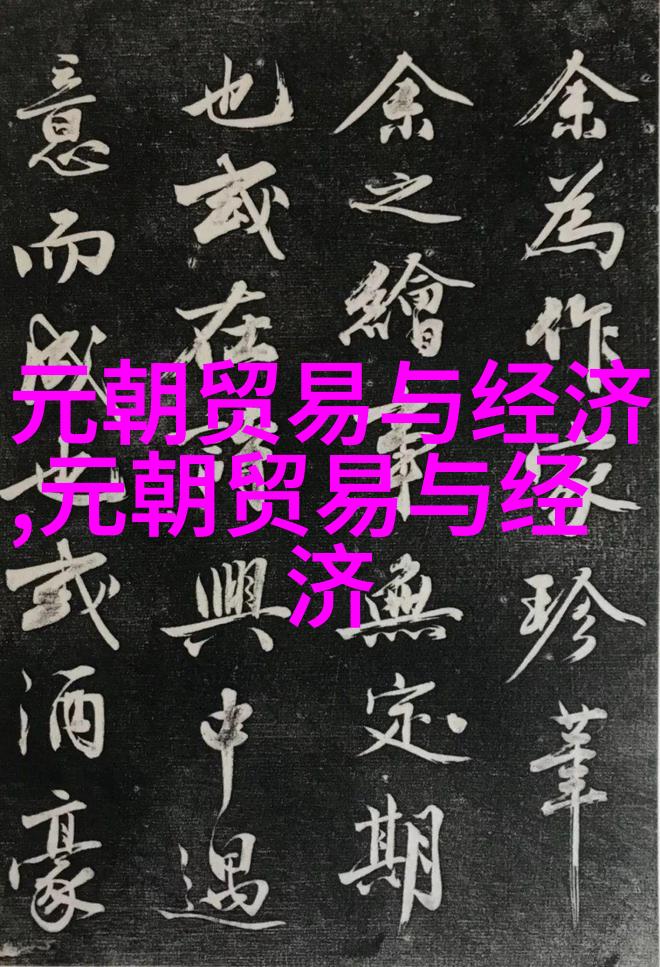 余為作家珍筆
余之繪事無定期
也或在詩興中遇
意而成也或酒豪
元朝贸易与经济
,元朝贸易与经
济